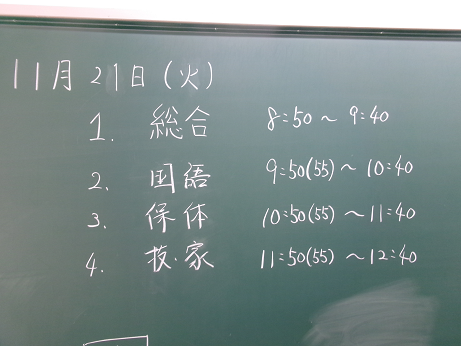 11月21日(火)
1. 総合 8:50 ~ 9:40
2. 国語 9:50(55) ~ 10:40
3. 保体 10:50(55) ~ 11:40
4. 技・家 11:50(55) ~ 12:40